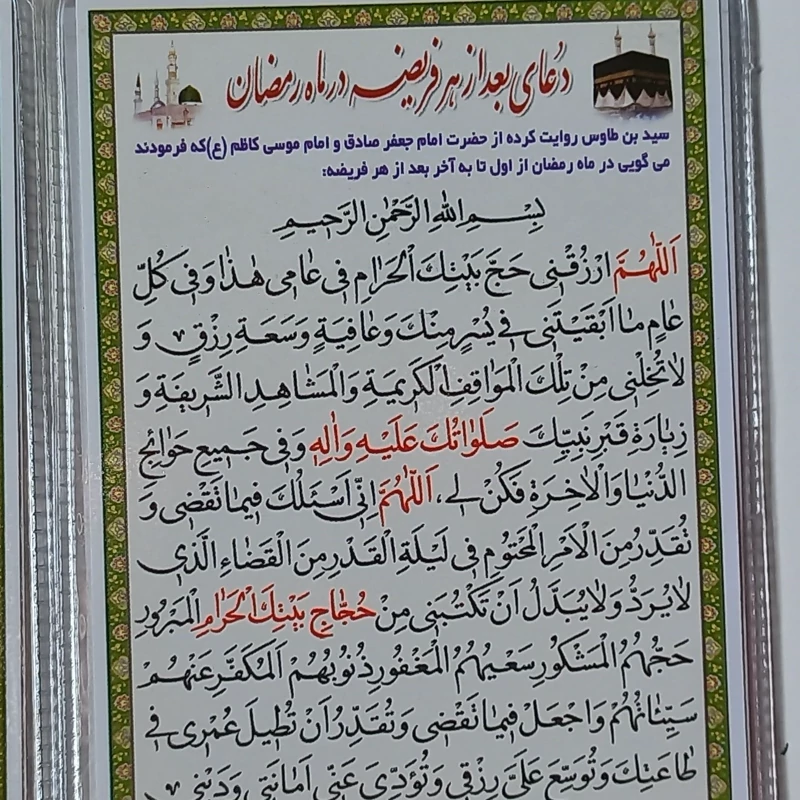 دعای بعد از هر فریضه در ماه رمضان
سید بن طاوس روایت کرده از حضرت امام جعفر صادق و امام موسی کاظم (ع)که فرمودند
می گویی در ماه رمضان از اول تا به آخر بعد از هر فریضه:
بِسْمِ اللهِ الرَّحْمٰنِ الرَّحیمِ
اَللّٰهُمَّ ارْزُقْنی حَجَّ بَیْتِكَ الْحَرامِ فی عامی هٰذا وَ فی کُلِّ
عامٍ ما اَبْقَیْتَنی فی یُسْرٍ مِنْكَ وَ عافِیَةٍ وَ سَعَةِ رِزْقٍ وَ
لا تُخْلِنی مِنْ تِلْكَ الْمَواقِفِ الْکَریمَةِ وَالْمَشاهِدِ الشَّریفَةِ وَ
زِیارَةِ قَبْرِ نَبِیِّكَ صَلَواتُكَ عَلَیْهِ وَ الِهِ وَ فی جَمیعِ حَوائِجِ
الدُّنْیا وَالْاٰخِرَةِ فَکُنْ لی، اَللّٰهُمَّ اِنّی اَسْئَلُكَ فیما تَقْضی وَ
تُقَدِّرُ مِنَ الْاَمْرِ الْمَحْتُومِ فی لَیْلَةِ الْقَدْرِ مِنَ الْقَضاءِ الَّذی
لا یُرَدُّ وَ لا یُبَدَّلُ اَنْ تَکْتُبَنی مِنْ حُجّاجِ بَیْتِكَ الْحَرامِ الْمَبْرُورِ
حَجُّهُمُ الْمَشْکُورِ سَعْیُهُمُ الْمَغْفُورِ ذُنُوبُهُمْ الْمُکَفَّرِ عَنْهُمْ
سَیِّئاتُهُمْ وَاجْعَلْ فیما تَقْضی وَ تُقَدِّرُ اَنْ تُطیلَ عُمْری فی
طاعَتِكَ وَ تُوَسِّعَ عَلَیَّ رِزْقی وَ تُؤَدِّیَ عَنّی اَمانَتی وَ دَیْنی